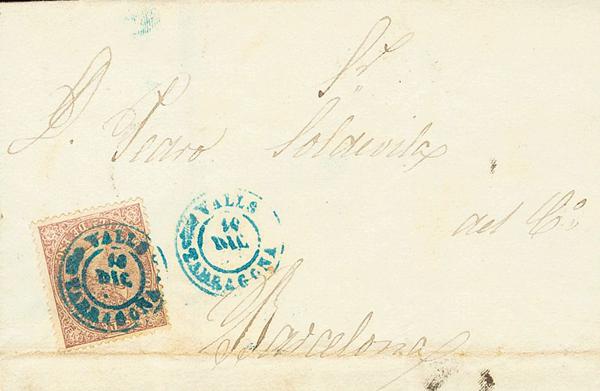 Sr
D. Pedro Soldevila
del Co
Barcelona
VALLS
16
DIC
TARRAGONA
VALLS
16
DIC
TARRAGONA